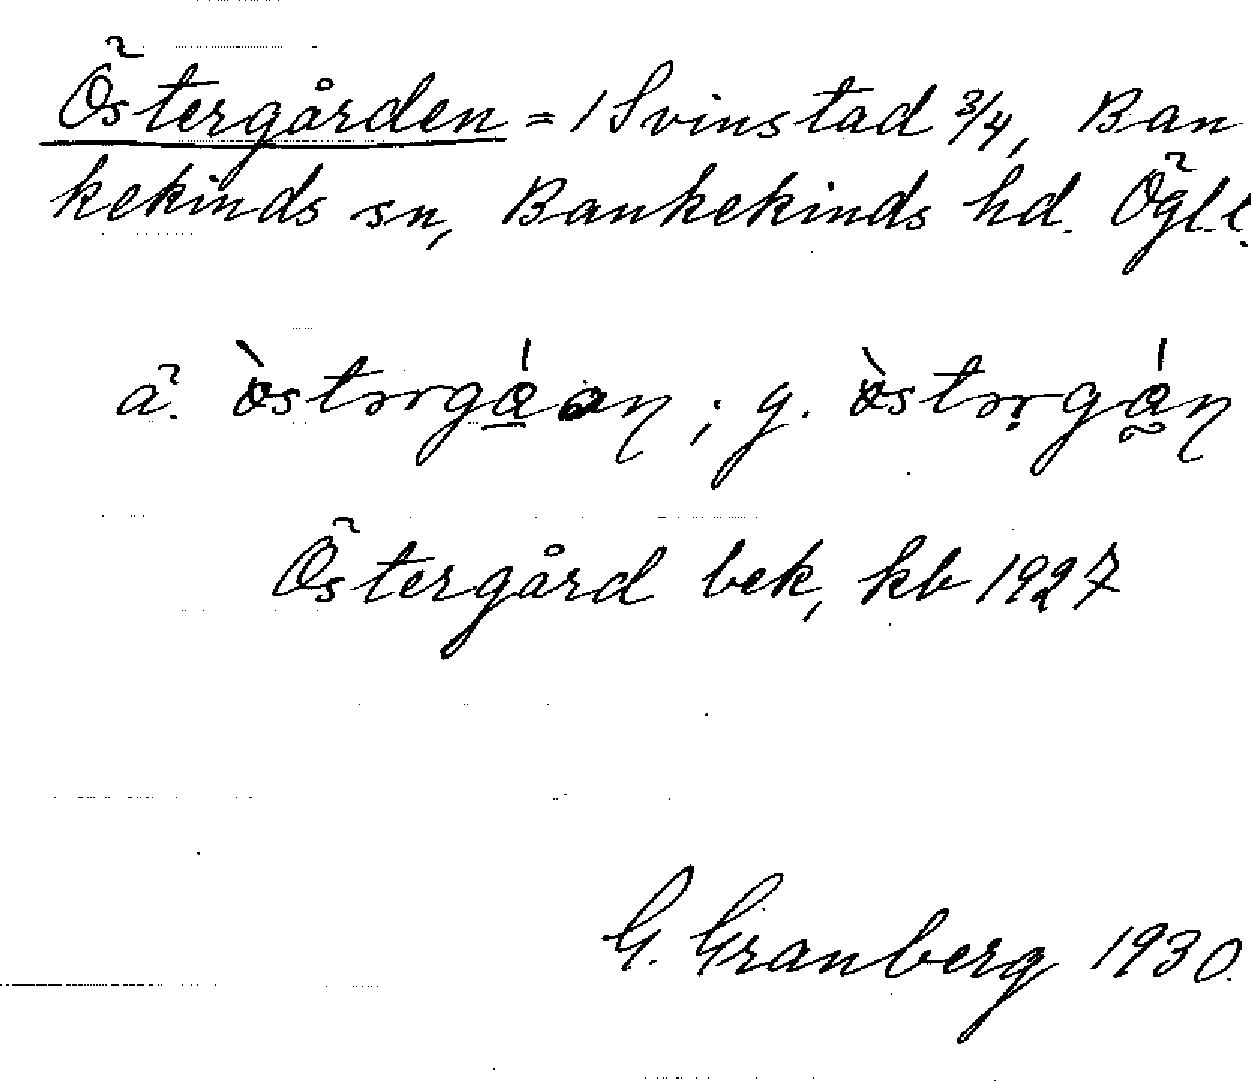 Östergården = 1 Svinstad 3/4, Ban
kekinds sn, Bankekinds hd. Ögl.
ä. ; g.
Östergård bek, kb 1927
G. Granberg 1930.